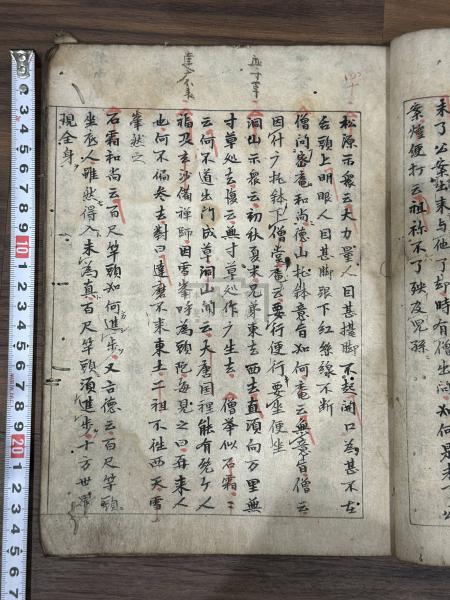 未了公案出来与他了却時有僧出問如何是未了公
案燈便打云祖祢不了殃及児孫
松源示衆云大力量人因甚擡脚不起開口為甚不在
舌頭上明眼人因甚脚跟下紅絲線不断
僧問密庵和尚德山托鉢意旨如何庵云無意旨僧云
因什广托鉢下僧堂庵云要行便行要坐便坐
洞山示衆云初秋夏末兄弟東去西去直須向万里無
寸草処去復云無寸草処作广生去僧挙似石霜霜
云何不道出門成草洞山聞云大唐国裡能有幾个人
福及玄沙備禅師因雪峯呼為頭陀毎見之曰再来人
也何不徧参去対曰達磨不来東土二祖不徃西天雪
峯然之
石霜和尚云百尺竿頭如何進歩又古德云百尺竿頭
坐底人雖然得入未為真百尺竿頭須進歩十方世界
現全身
無寸草
10
20